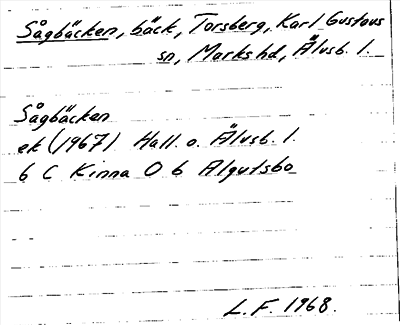 Sågbäcken, bäck, Torsberg, Karl Gustavs
sn, Marks hd, Älvsb. l.
Sågbäcken
ek (1967) Hall. o. Älvsb. l.
6 C Kinna O b Algutsbo
L.F. 1968.